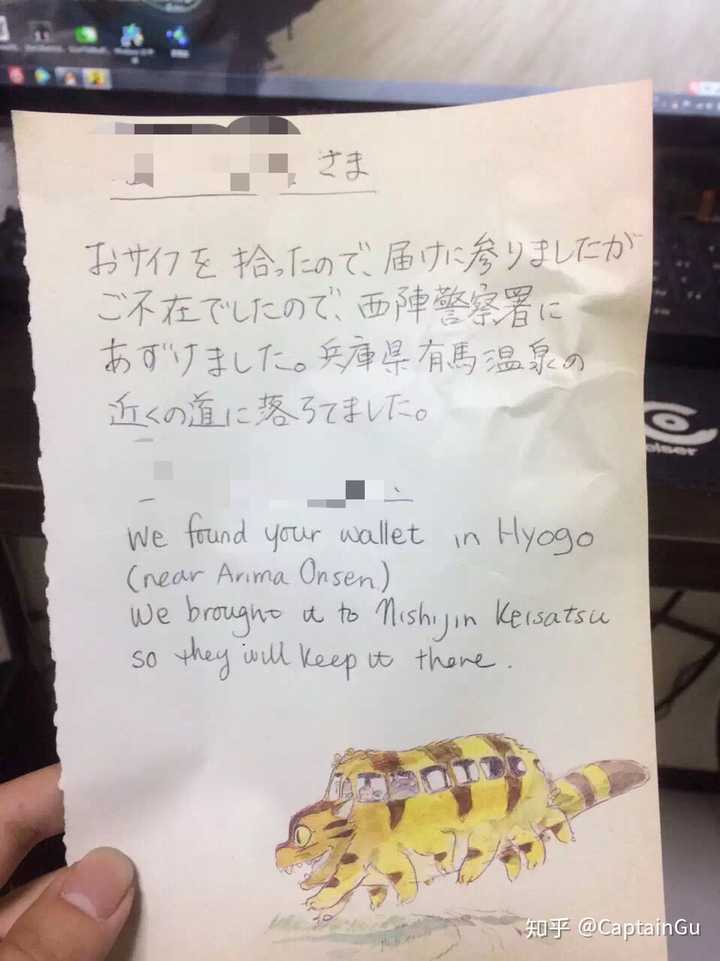 さま
おサイフを拾ったので、届けに参りましたが
ご不在でしたので、西陣警察署に
あずけました。兵庫県有馬温泉の
近くの道に落ちてました。
We found your wallet in Hyogo
(near Arima Onsen)
We brought it to Nishijin Keisatsu
so they will keep it there.
知乎 @CaptainGu